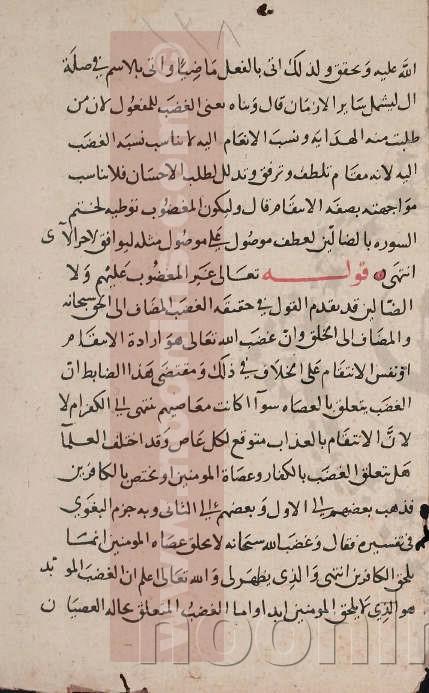 الله عليه وتحقق ولذلك اتى بالفعل ماضيا واتى بالاسم في صلة
ال ليشمل ساير الازمان قال وبناه يعنى الغضب للمفعول لان من
طلبت منه الهداية ونسب الانعام اليه لا يناسب نسبة الغضب
اليه لانه مقام تلطف وترفق وتذلل لطلب الاحسان فلا يناسب
مواجهته بصفة الانتقام قال وليكون المغضوب توطية لختم
السورة بالضالين لعطف موصول على موصول مثله ليوافق اخر الآى
انتهى قوله تعالى غير المغضوب عليهم ولا
الضالين قد تقدم القول في حقيقة الغضب المضاف الى الحق سبحانه
والمضاف الى الخلق وان غضب الله تعالى هو ارادة الانتقام
او نفس الانتقام على الخلاف في ذلك ومقتضى هذا الضابط ان
الغضب يتعلق بالعصاه سوآ اكانت معاصيهم تنتهى الى الكفر ام لا
لان الانتقام بالعذاب متوقع لكل عاص وقد اختلف العلمآ
هل تعلق الغضب بالكفار وعصاة المومنين او يختص بالكافرين
فذهب بعضهم الى الاول وبعضهم الى الثانى وبه جزم البغوي
في تفسيره فقال وغضب الله سبحانه لا يلحق عصاه المومنين انما
يلحق الكافرين انتهى والذى يظهر لى والله تعالى اعلم ان الغضب الموبد
هو الذى لا يلحق المومنين ابدا واما الغضب المتعلق بحالة العصيان